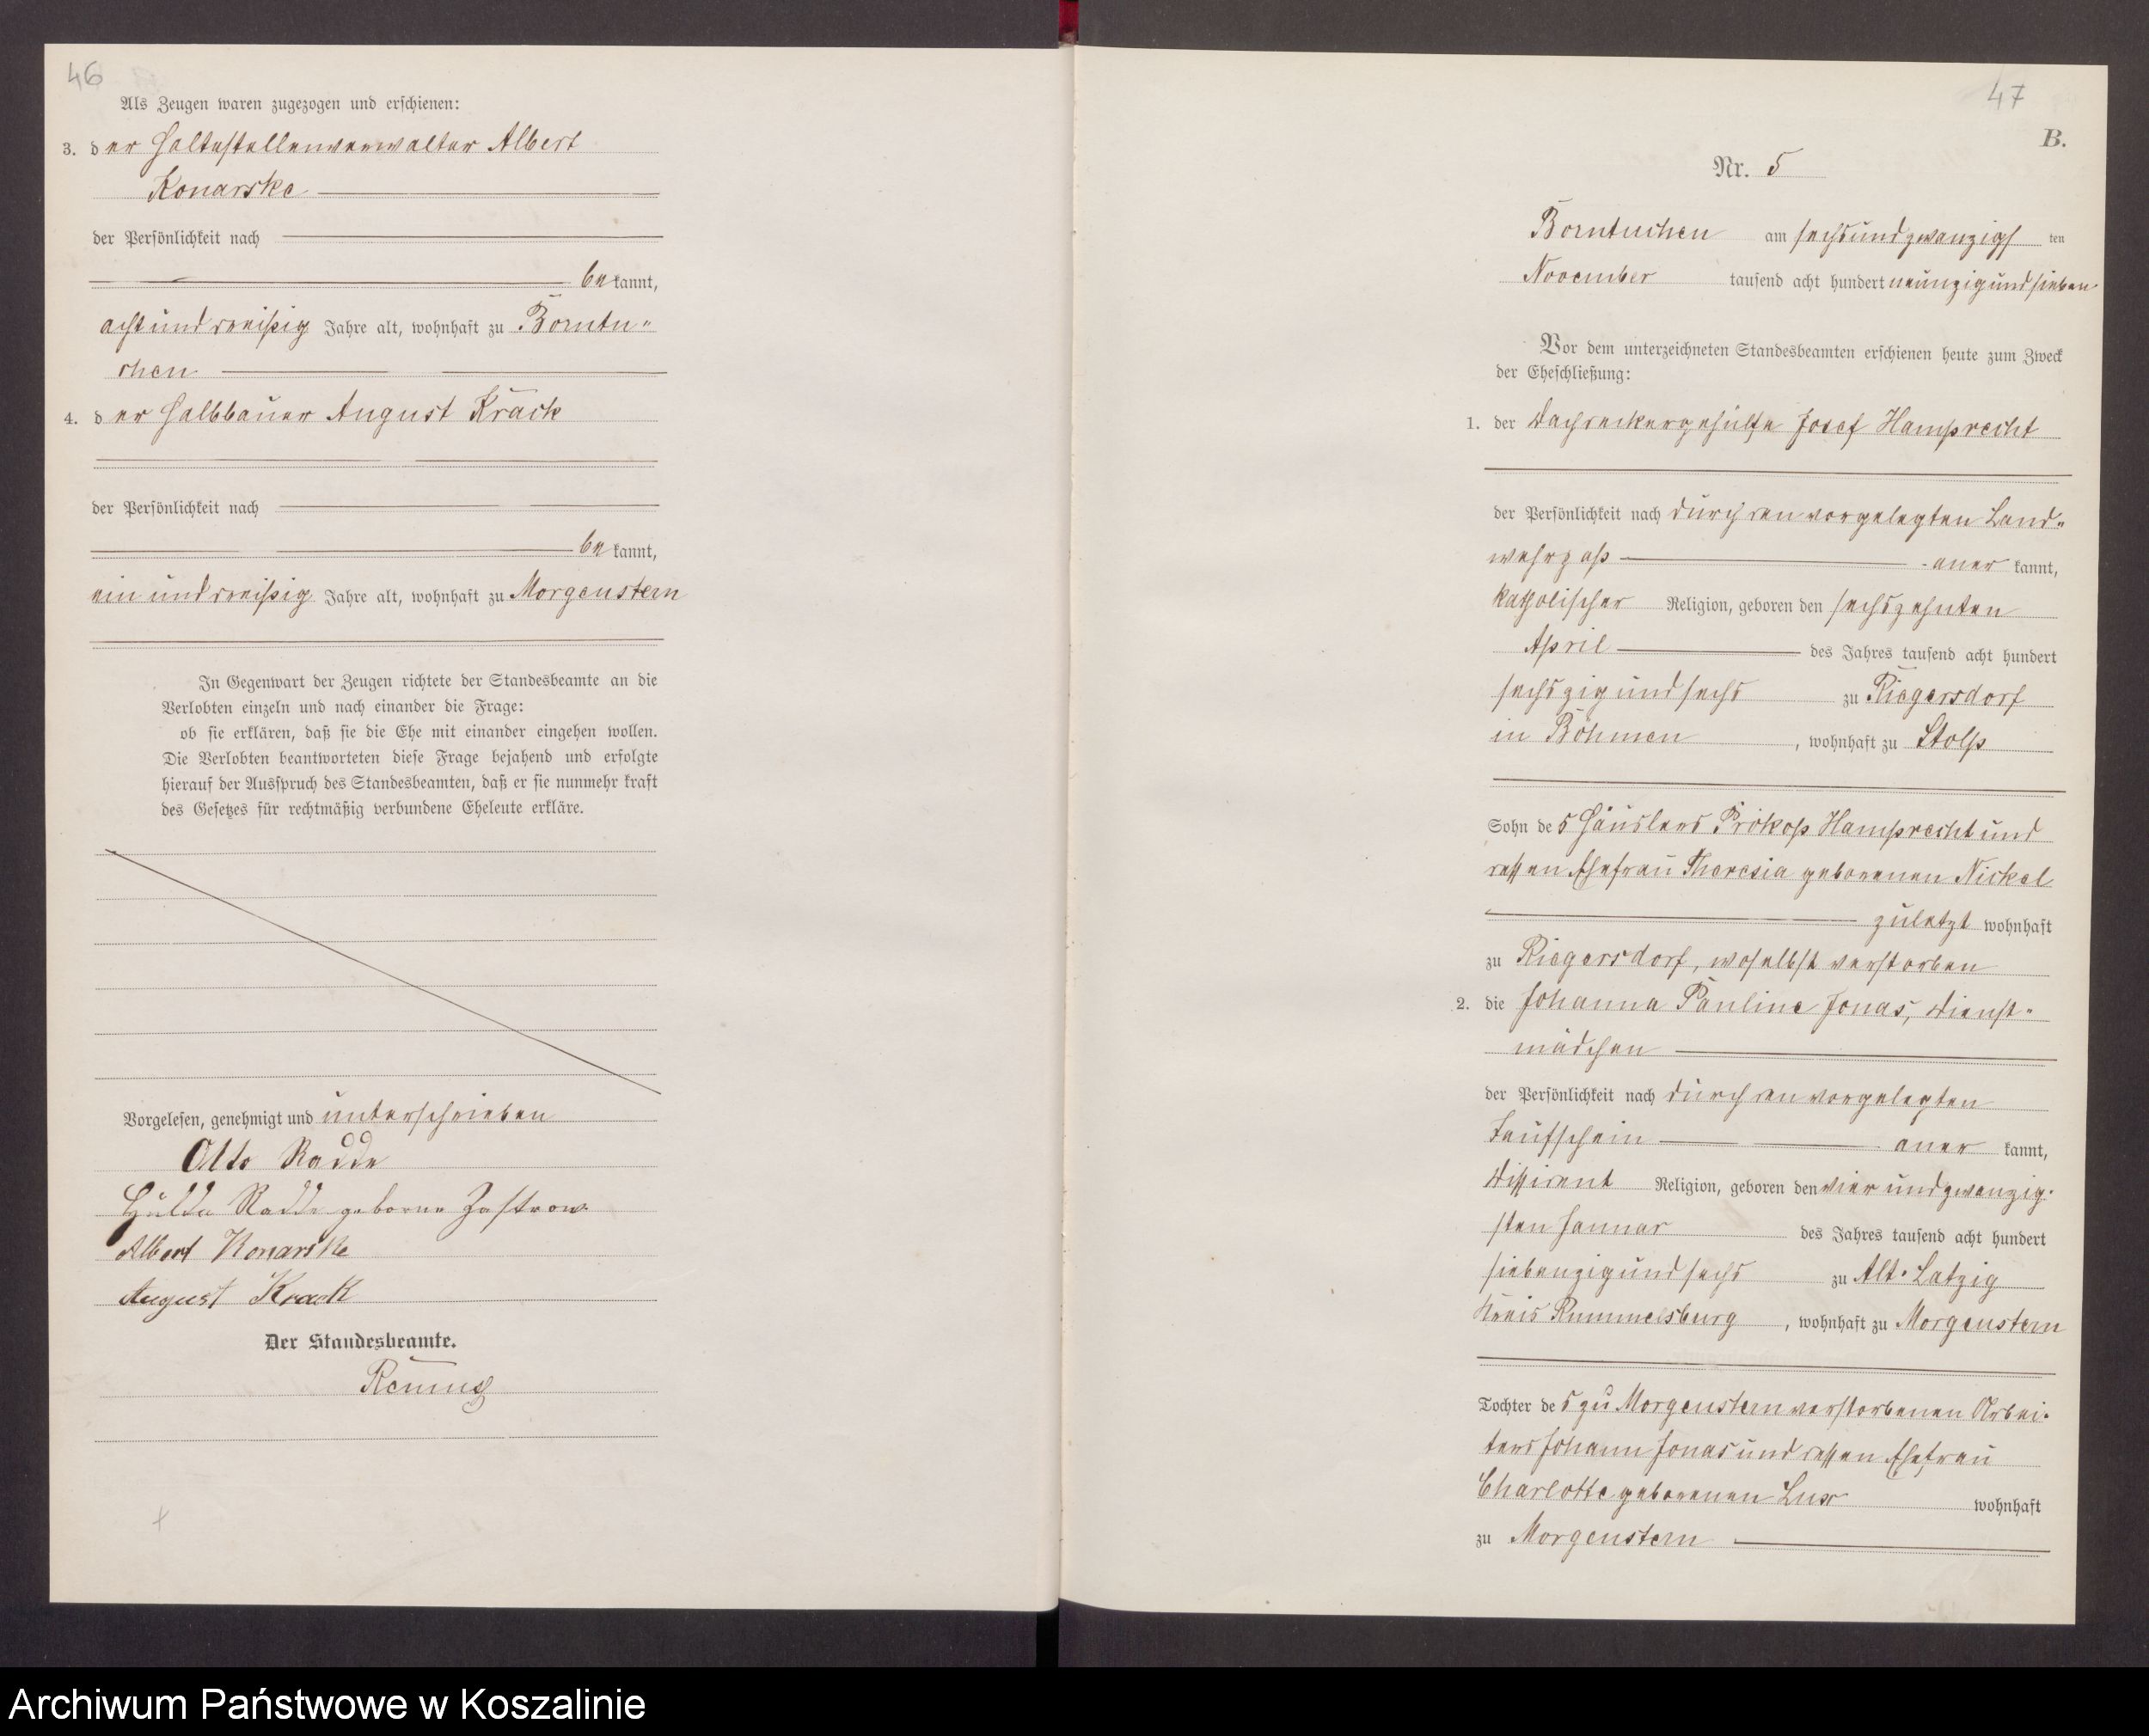 46
Als Zeugen waren zugezogen und erschienen:
3. der Haltestellenverwalter Albert
Konarske
der Persönlichkeit nach
bekannt,
achtunddreißig Jahre alt, wohnhaft zu Borntu-
chen
4. der Halbbauer August Krack
der Persönlichkeit nach
bekannt,
einunddreißig Jahre alt, wohnhaft zu Morgenstern
In Gegenwart der Zeugen richtete der Standesbeamte an die
Verlobten einzeln und nach einander die Frage:
ob sie erklären, daß sie die Ehe mit einander eingehen wollen.
Die Verlobten beantworteten diese Frage bejahend und erfolgte
hierauf der Ausspruch des Standesbeamten, daß er sie nunmehr kraft
des Gesetzes für rechtmäßig verbundene Eheleute erkläre.
Vorgelesen, genehmigt und unterschrieben
Otto Radde
Hulda Radde geborne Zastrow
Albert Konarske
August Krack
Der Standesbeamte.
47
B.
Nr. 5
Borntuchen am sechsundzwanzigsten
November tausend acht hundert neunzigundsieben
Vor dem unterzeichneten Standesbeamten erschienen heute zum Zweck
der Eheschließung:
1. der Dachdeckergehülfe Josef Hamprecht
der Persönlichkeit nach durch den vorgelegten Land-
wehrpaß anerkannt,
katholischer Religion, geboren den sechszehnten
April des Jahres tausend acht hundert
sechszig und sechs zu Riegersdorf
in Böhmen, wohnhaft zu Stolp
Sohn des Häuslers Prokop Hamprecht und
dessen Ehefrau Theresia geborenen Nickel
zuletzt wohnhaft
zu Riegersdorf, woselbst verstorben
2. die Johanna Pauline Jonas, Dienst-
mädchen
der Persönlichkeit nach durch den vorgelegten
Taufschein anerkannt,
Dissident Religion, geboren den vier und zwanzig-
sten Januar des Jahres tausend acht hundert
siebenzig und sechs zu Alt-Latzig
Kreis Rummelsburg, wohnhaft zu Morgenstern
Tochter des zu Morgenstern verstorbenen Arbei-
ters Johann Jonas und dessen Ehefrau
Charlotte geborenen Lux wohnhaft
zu Morgenstern
Archiwum Państwowe w Koszalinie